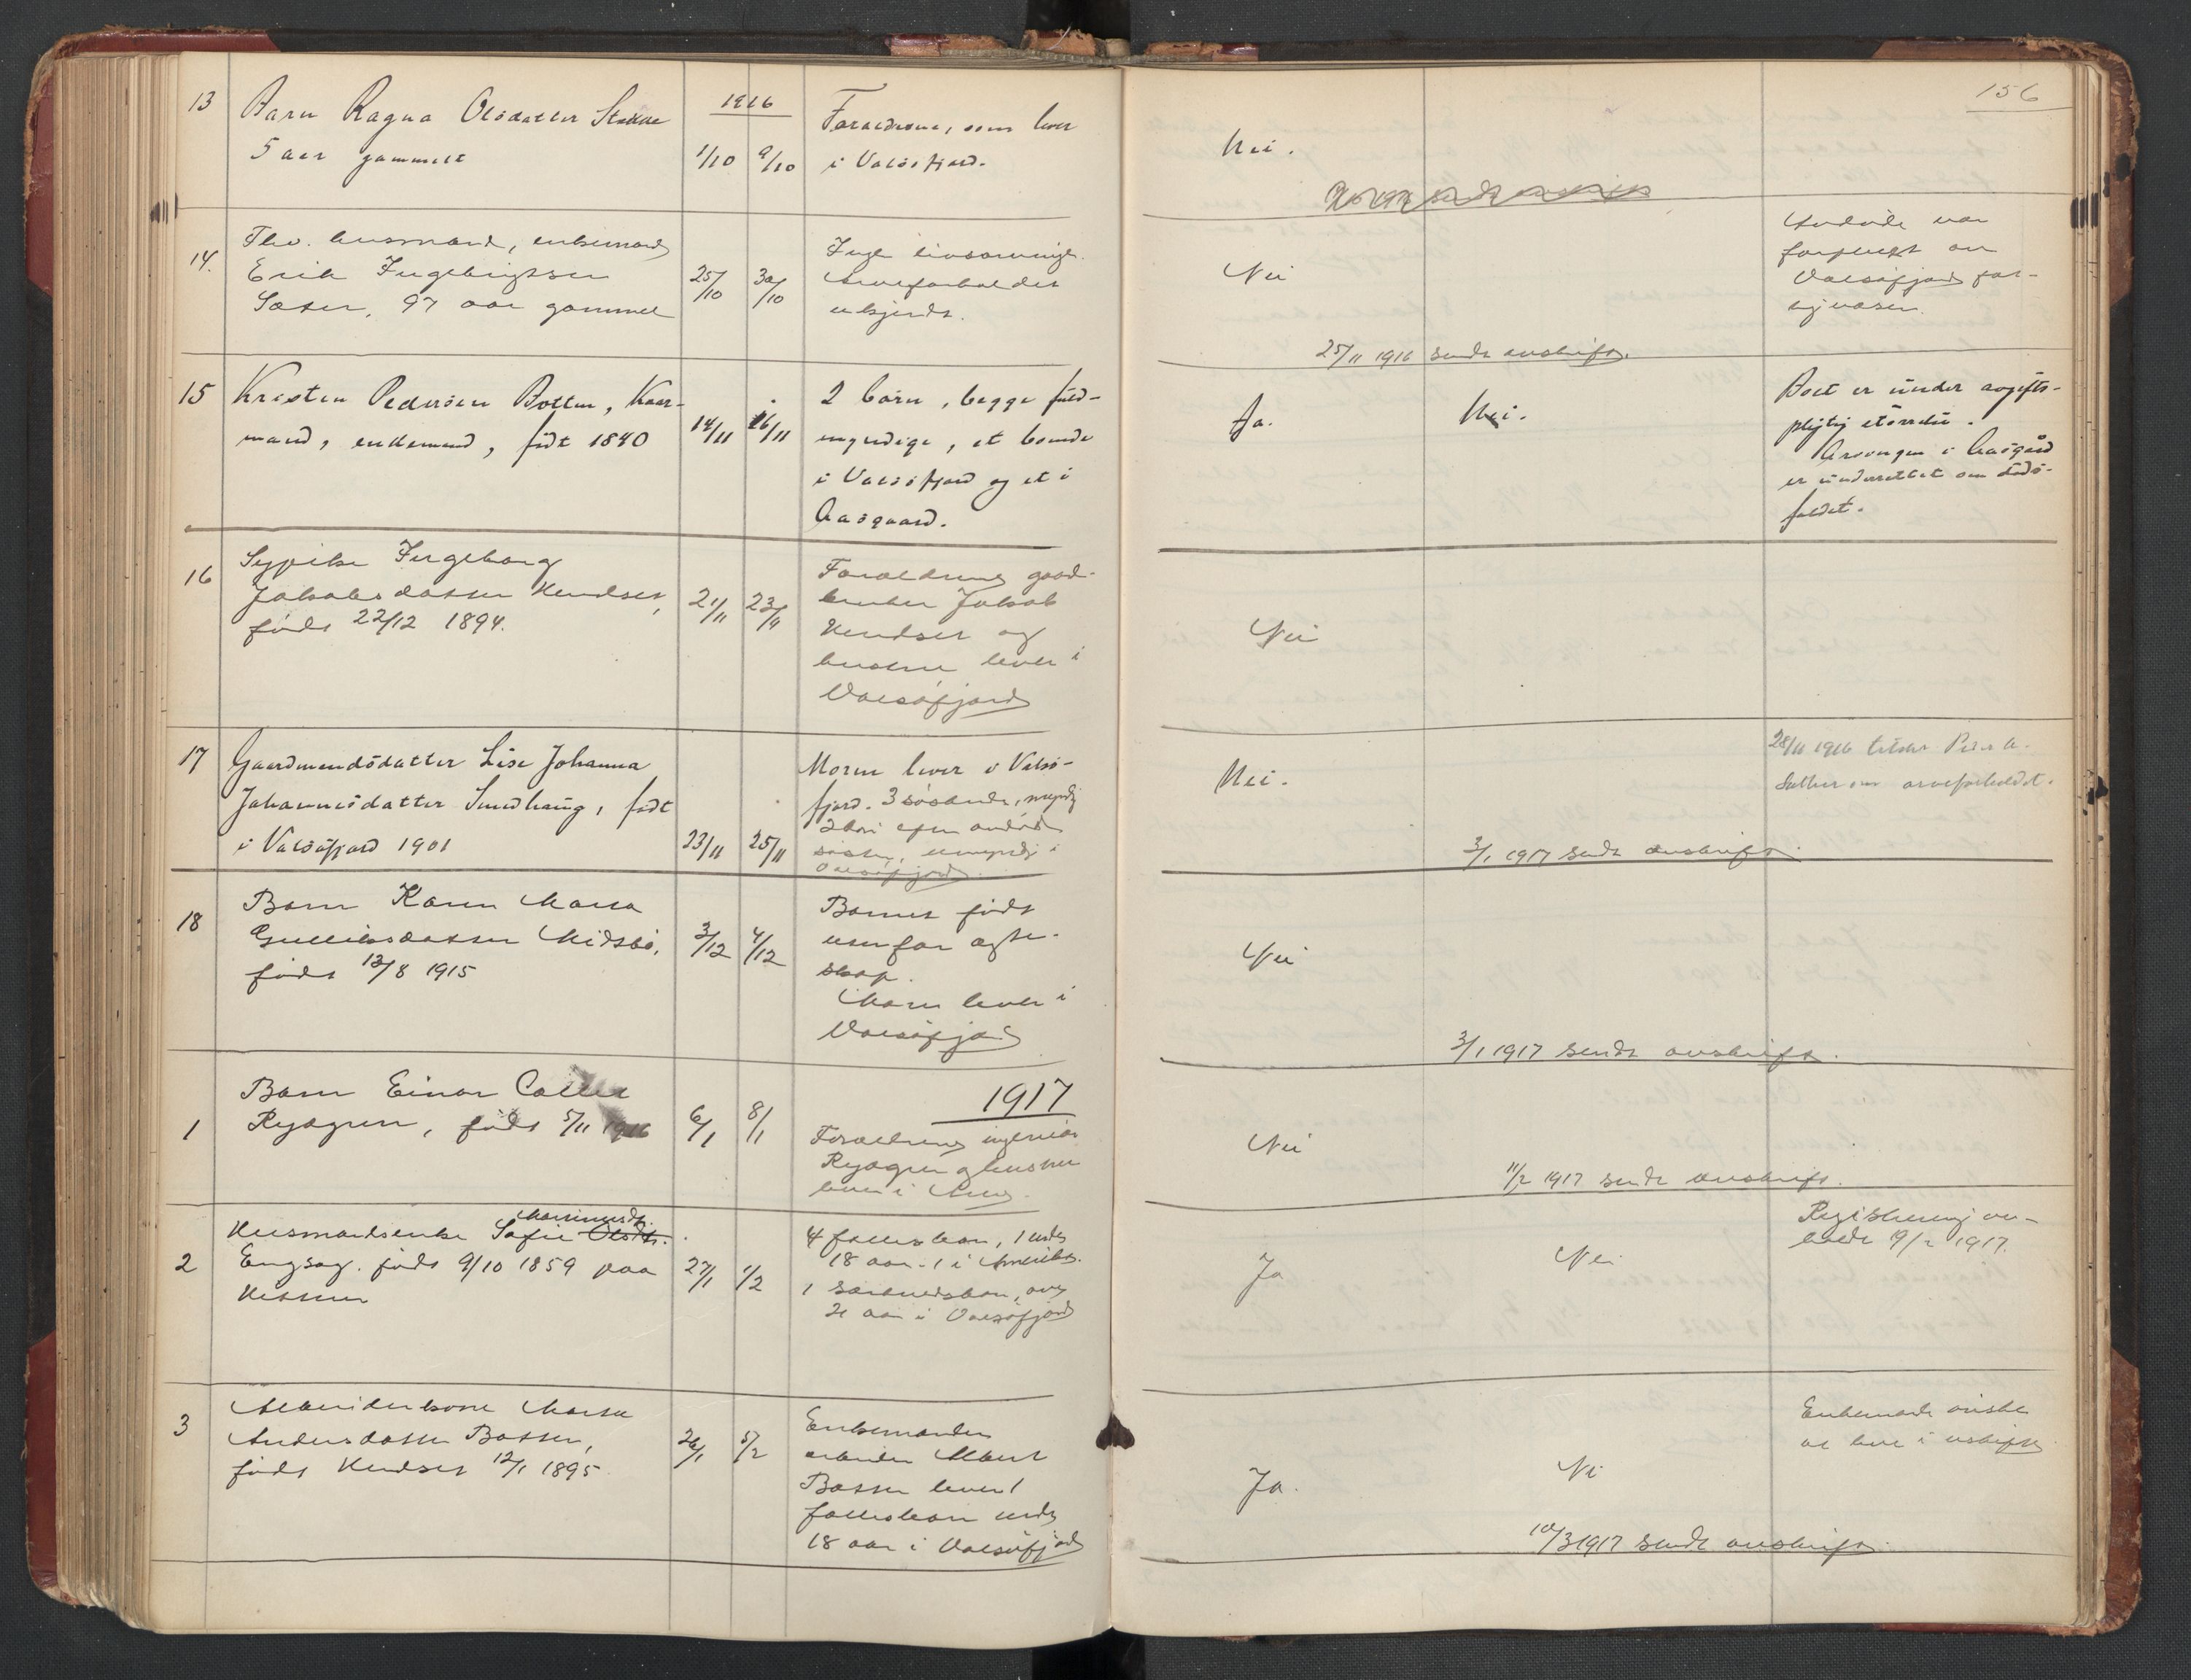 156
13
Barn Ragna Olsdatter Stokke
5 aar gammelt
1916
1/10
9/10
Forældrene, som lever
i Valsöfjord.
Nei.
14.
Fhv. husmand, enkemand
Erik Ingebrigtsen
Sæter, 97 aar gammel
25/10
30/10
Ingen livsarvinger.
Arveforholdet
ukjendt.
Nei
Avdøde var
forpleiet av
Valsøfjord fat-
igvæsen.
25/11 1916 sendt avskrift.
15
Kristen Pedersen Botten, Kaar-
mand, enkemand, födt 1840
14/11
16/11
2 börn, begge fuld-
myndige, et boende
i Valsöfjord og et i
Aasgaard.
Ja.
Nei.
Boet er under avgifts-
pligtig störrelse.
Arvingen i Aasgård
er underrettet om döds-
faldet.
16
Sypike Ingeborg
Jakobsdatter Hendset,
født 22/12 1894.
21/11
23/11
Forældrene gaard-
bruker Jakob
Hendset og
hustru lever i
Valsøfjord
Nei
17
Gaardmandsdatter Lise Johanna
Johannesdatter Smedhaug, födt
i Valsöfjord 1901
23/11
25/11
Moren lever i Valsö-
fjord. 3 søskende, myndig
2 barn efter avdød
søster, umyndig i
Valsøfjord.
Nei.
28/11 1916 tilskr. Peder A.
om arveforholdet.
3/1 1917 sendt avskrift.
18
Barn Karen Marta
Gulliksdatter Midsbø,
født 13/8 1915
3/12
4/12
Barnet født
utenfor ægte-
skap.
Moren lever i
Valsøfjord
Nei
3/1 1917 sendt avskrift.
1
Barn Einar
Rydgren, født 5/11 1916
6/1
8/1
1917
Forældrene ingeniør
Rydgren og hustru
lever i
Nei
11/2 1917 sendt avskrift.
2
Husmandsenke Sofie Olsdtr.
Engsag. født 9/10 1859 paa
27/1
1/2
4 fællesbarn, 1 under
18 aar - 1 i Amerika.
1 særkuldsbarn, over
21 aar i Valsøfjord
Ja
Nei
Registrering av-
holdt 9/2 1917.
3
Arbeiderkone Marta
Andersdatter Botten,
født Hendset 12/1 1895
26/1
5/2
Enkemanden
arbeider Albert
Botten lever 1
fællesbarn under
18 aar i Valsøfjord
Ja.
Nei
Enkemand ønsker
at leve i uskiftet
10/3 1917 sendt avskrift.